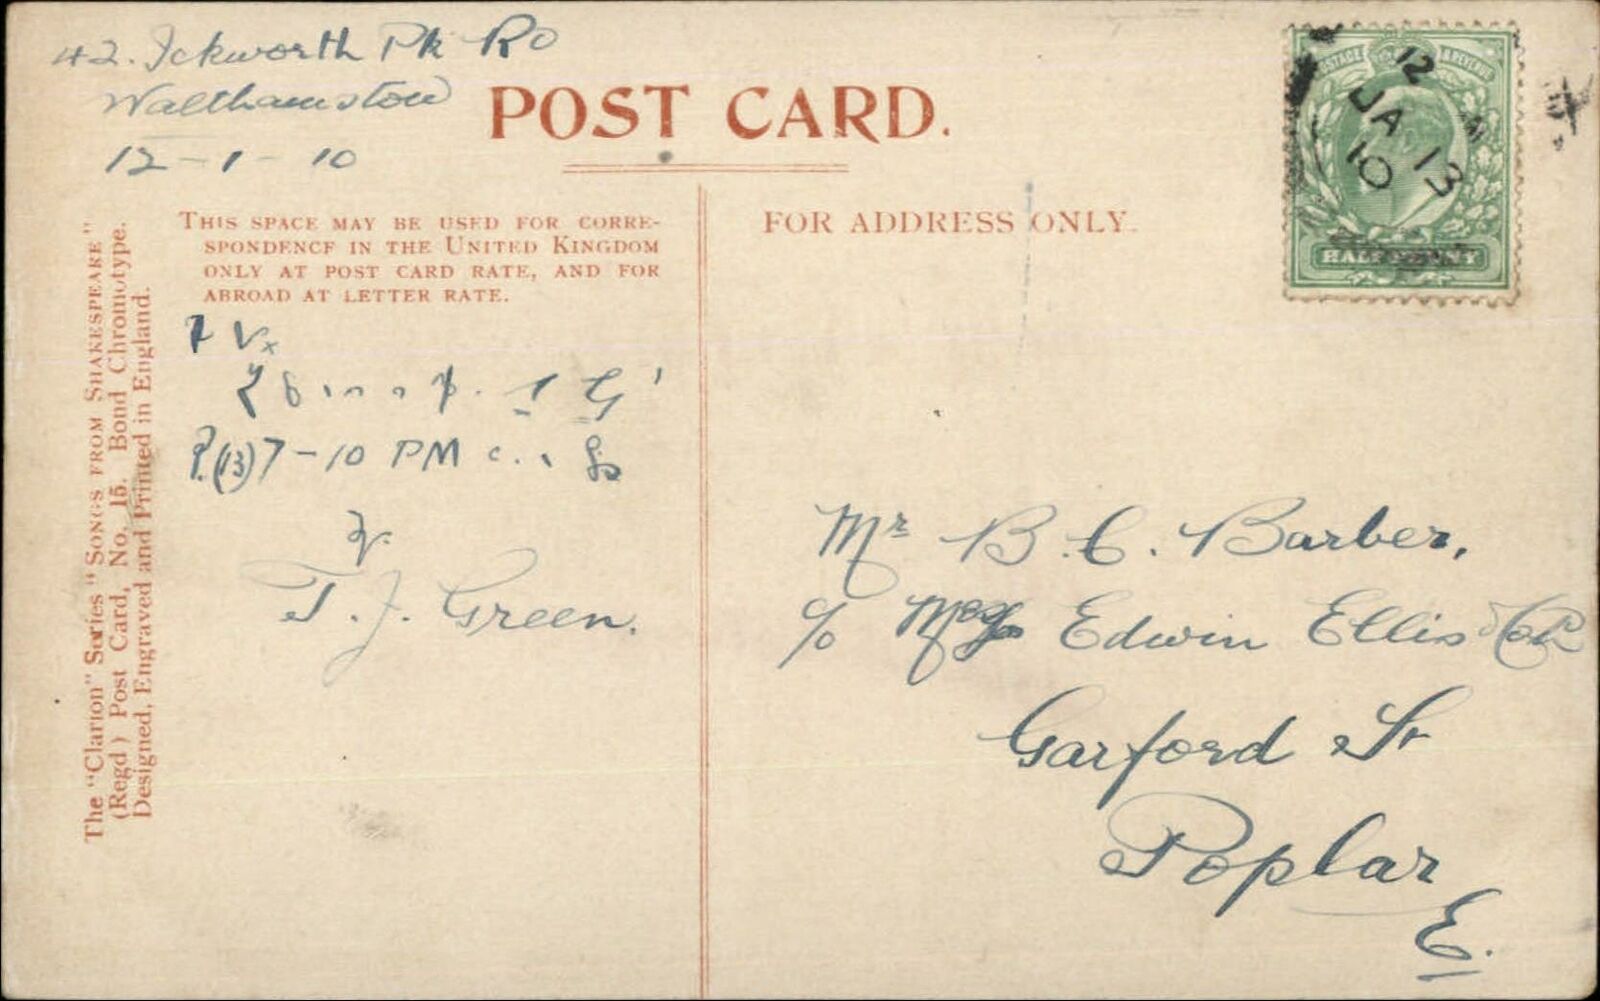 42. Ickworth Pk Rd
Walthamstow
12-1-10
POST CARD.
THIS SPACE MAY BE USED FOR CORRE-
SPONDENCE IN THE UNITED KINGDOM
ONLY AT POST CARD RATE, AND FOR
ABROAD AT LETTER RATE.
(13) 7-10 PM
T. J. Green.
The "Clarion" Series "Songs from Shakespeare"
(Regd) Post Card, No. 15. Bond Chromotype.
Designed, Engraved and Printed in England.
FOR ADDRESS ONLY.
POSTAGE & REVENUE
HALFPENNY
12
JA 13
10
Mr B. C. Barber,
c/o Edwin Ellis & Co
Garford St
Poplar
E.